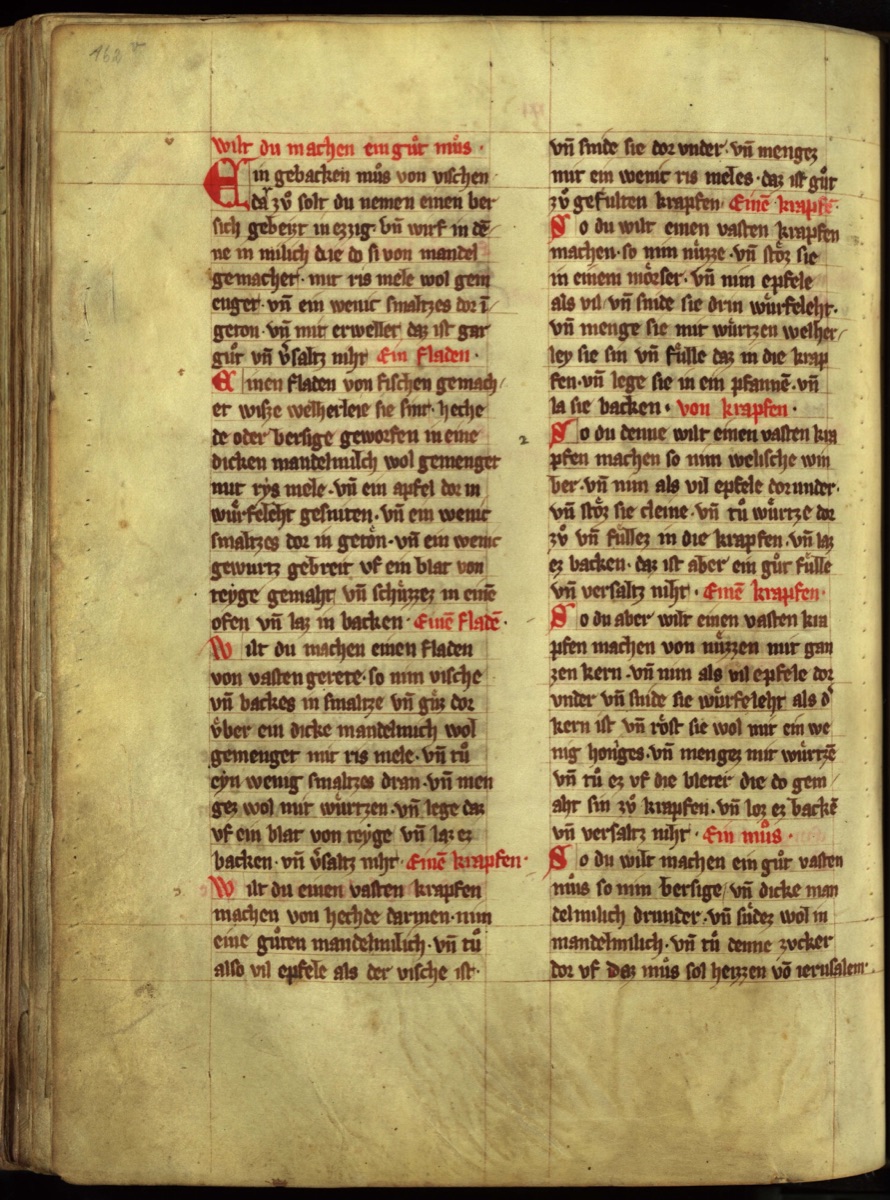 162 v
wilt du machen ein gůt můs ·
Ein gebacken můs von vischen
daz zů solt du nemen einen ber
sich gebeizt in ezzig · vn̄ wirf in dē
ne in milich die do si von mandel
gemachet · mit ris mele wol gem
enget · vn̄ ein wenic smaltzes dor ī
geton · vn̄ mit erwellet daz ist gar
gůt vn̄ v̓saltz niht Ein fladen ·
Einen fladen von fischen gemach/
et wisze welherleie sie sint · heche
de oder bersige geworfen in eine
dicken mandelmilch wol gemenget
mit rys mele · vn̄ ein apfel dor in
wuͤrfeleht gesniten · vn̄ ein wenic
smaltzes dor in getoͤn · vn̄ ein wenic
gewurtz gebreit vf ein blat von
teyge gemaht vn̄ schuͤzzez in einē
ofen vn̄ laz in backen · Einē fladē ·
Wilt du machen einen fladen
von vasten gerete · so nim vische
vn̄ backes in smaltze vn̄ giz dor
vͤber ein dicke mandelmich wol
gemenget mit ris mele · vn̄ tů
eyn wenig smaltzes dran · vn̄ men
gez wol mit wuͤrtzen · vn̄ lege daz
vf ein blat von teyge vn̄ laz ez
backen · vn̄ v̓saltz niht · Einē krapfen ·
Wilt du einen vasten krapfen
machen von hechde darmen · nim
eine gůten mandelmilich · vn̄ tů
also vil epfele als der vische ist ·
vn̄ snide sie dor vnder · vn̄ mengez
mit ein wenic ris meles · daz ist gůt
zů gefulten krapfen · Einē krapfē ·
So du wilt einen vasten krapfen
machen · so nim nuͤzze · vn̄ stoͤz sie
in einem moͤrser · vn̄ nim epfele
als vil vn̄ snide sie drin wuͤrfeleht ·
vn̄ menge sie mit wuͤrtzen welher/
ley sie sin vn̄ fuͤlle daz in die krap
fen · vn̄ lege sie in ein pfannē · vn̄
la sie backen · von krapfen ·
So du denne wilt einen vasten kra
pfen machen so nim welische win
ber · vn̄ nim als vil epfele dor vnder ·
vn̄ stoͤz sie cleine · vn̄ tů wuͤrtze dor
zů vn̄ fuͤllez in die krapfen · vn̄ laz
ez backen · daz ist aber ein gůt fuͤlle
vn̄ versaltz niht · Einē krapfen ·
So du aber wilt einen vasten kra
pfen machen von nuͤzzen mit gan
zen kern · vn̄ nim als vil epfele dor
vnder vn̄ snide sie wuͤrfeleht als d̓
kern ist vn̄ roͤst sie wol mit ein we
nig honiges · vn̄ mengez mit wuͤrtzē
vn̄ tů ez vf die bleter die do gem
aht sin zů krapfen · vn̄ loz ez backē
vn̄ versaltz niht · Ein můs ·
So du wilt machen ein gůt vasten
můs so nim bersige / vn̄ dicke man
delmilich drunder · vn̄ suͤdez wol in
mandelmilich · vn̄ tů denne zvcker
dor vf daz můs sol heizzen vō ierusalem ·